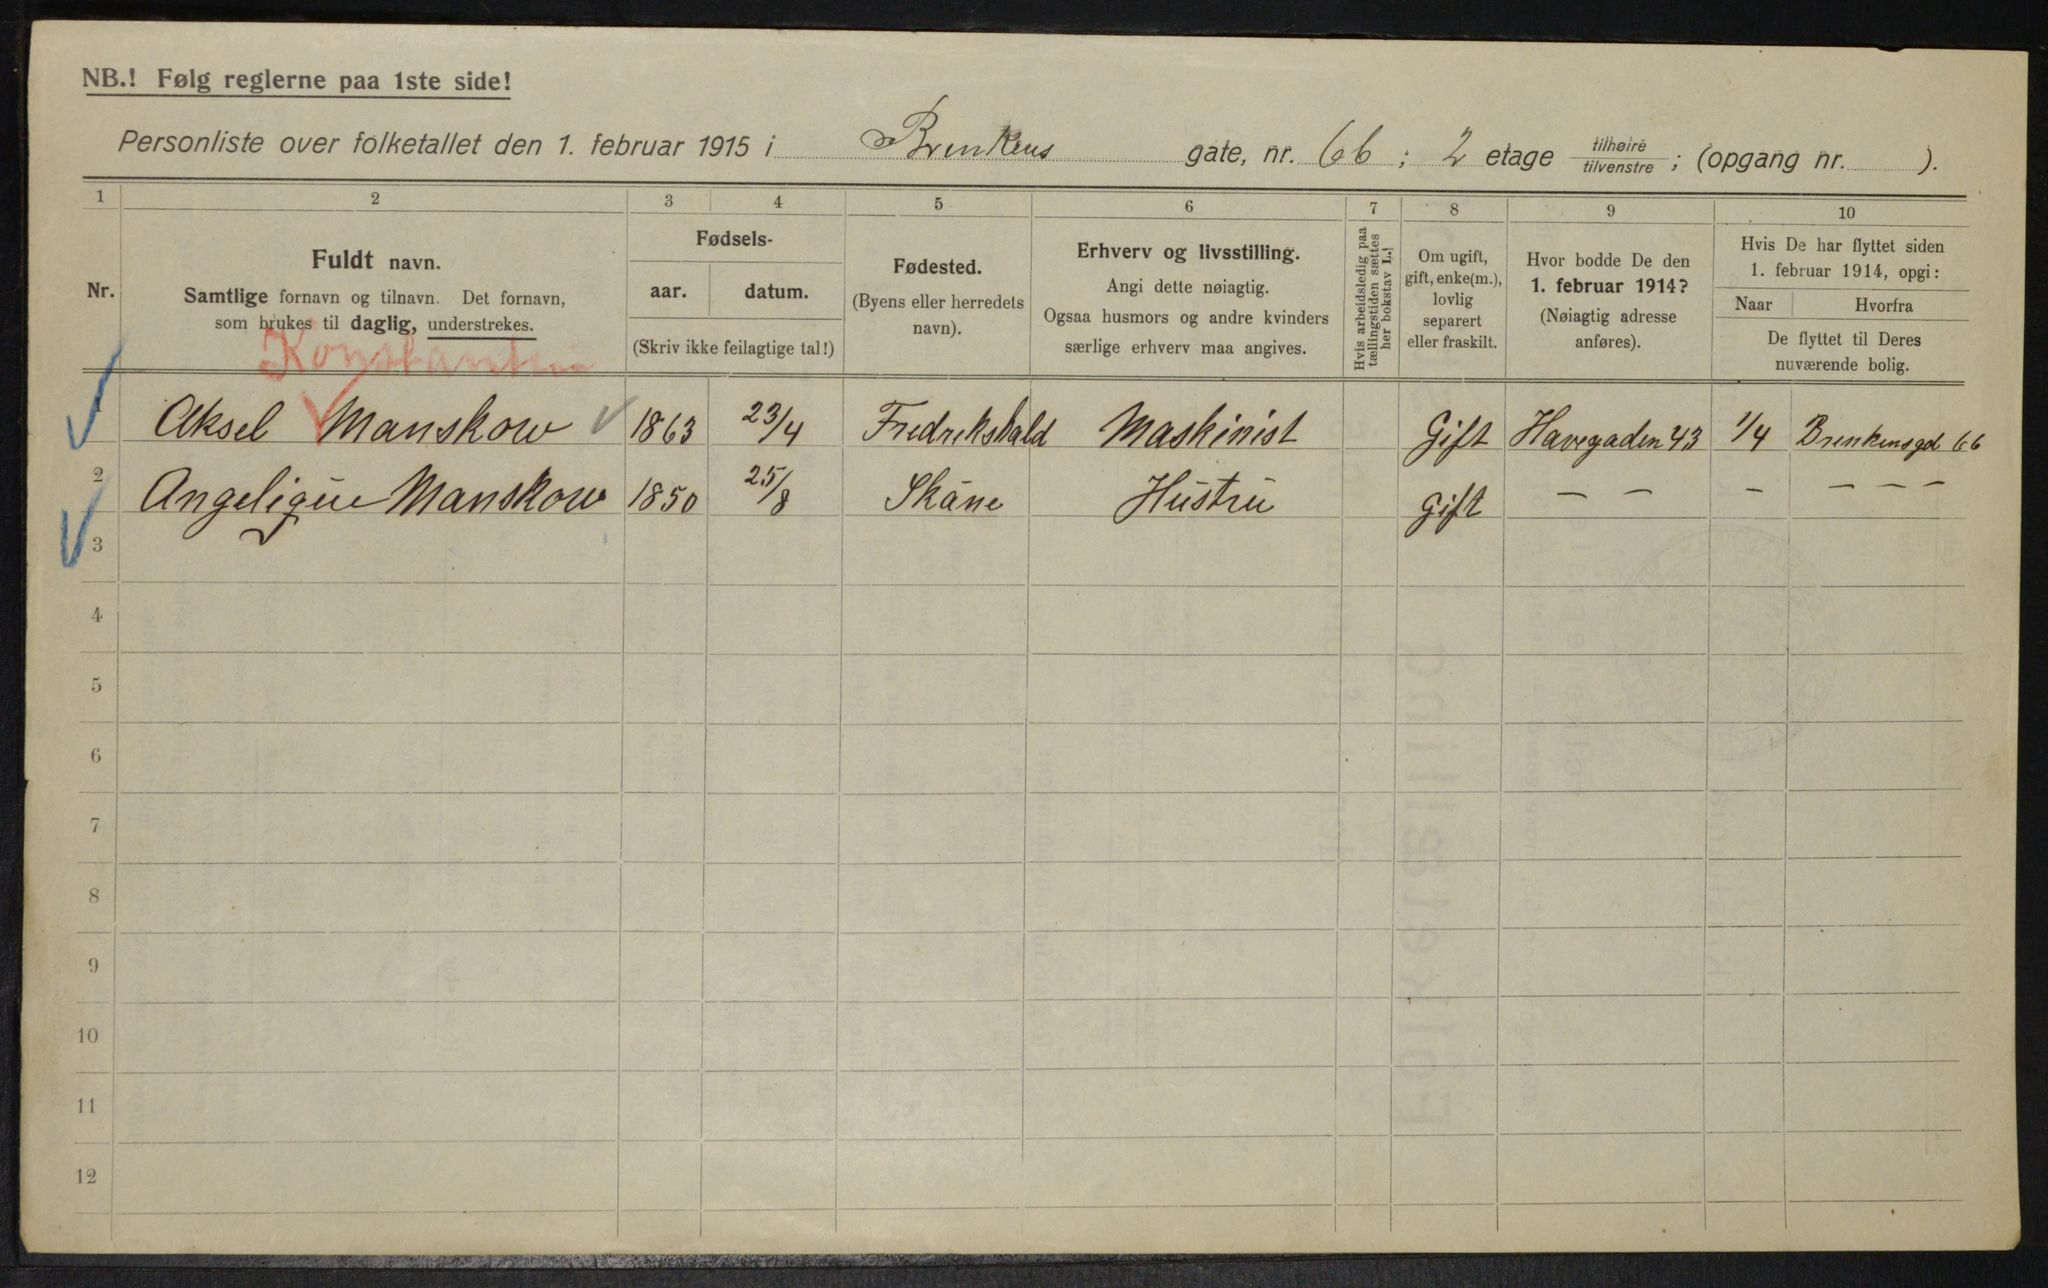 NB.! Følg reglerne paa 1ste side!
Personliste over folketallet den 1. februar 1915 i Brenkens gate, nr. 66; 2 etage tilhøire tilvenstre; (opgang nr. ).
1 2 3 4 5 6 7 8 9 10
Nr.
Fuldt navn.
Samtlige fornavn og tilnavn. Det fornavn,
som brukes til daglig, understrekes.
Fødsels-
aar. datum.
(Skriv ikke feilagtige tal!)
Fødested.
(Byens eller herredets
navn).
Erhverv og livsstilling.
Angi dette nøiagtig.
Ogsaa husmors og andre kvinders
særlige erhverv maa angives.
Hvis arbeidsledig paa
tællingstiden sættes
her bokstav L.!
Om ugift,
gift, enke(m.),
lovlig
separert
eller fraskilt.
Hvor bodde De den
1. februar 1914?
(Nøiagtig adresse
anføres).
Hvis De har flyttet siden
1. februar 1914, opgi:
Naar Hvorfra
De flyttet til Deres
nuværende bolig.
Konstantin
Aksel Manskow 1863 23/4 Fredrikshald Maskinist Gift Havegaden 43 1/4 Brenkensgd 66
2 Angelique Manskow 1850 25/8 Skåne Hustru Gift — — — — — —
3
4
5
6
7
8
9
10
11
12